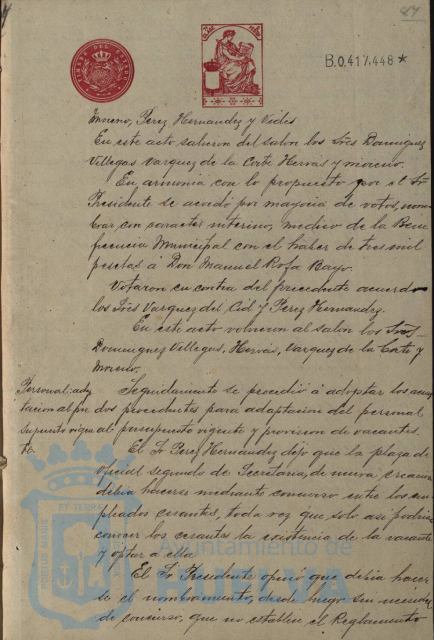 87
TIMBRE DEL ESTADO
B.0.417.448*
Moreno, Perez Hernandez y Vides
En este acto salieron del salon los Sres Dominguez
Villegas Vazquez de la Corte Hervás y Moreno.
En armonia con lo propuesto por el Sr
Presidente se acordó por mayoria de votos, nom-
brar con caracter interino, medico de la Bene
ficencia Municipal con el haber de tres mil
pesetas á Don Manuel Rofa Bayo.
Votaron en contra del precedente acuerdo
los Sres Vazquez del Cid y Perez Hernandez.
En este acto volvieron al salon los Sres
Dominguez Villegas, Hervás, Vazquez de la Corte y
Moreno.
Personal: adap
tacion al pre
supuesto vigen
te.
Seguidamente se procedió á adoptar los acuer
dos procedentes para adaptacion del personal
al presupuesto vigente y provision de vacantes.
El Sr Perez Hernandez dijo que la plaza de
oficial segundo de Secretaria, de nueva creacion
debia hacerse mediante concurso entre los em-
pleados cesantes, toda vez que solo asi podrian
conocer los cesantes la existencia de la vacante
y optar a ella.
El Sr Presidente opinó que debia hacer
se el nombramiento, desde luego sin necesidad
de concurso, que no establece el Reglamento
Ayuntamiento de
HUELVA
PORTUS MARIS ET TERRAE